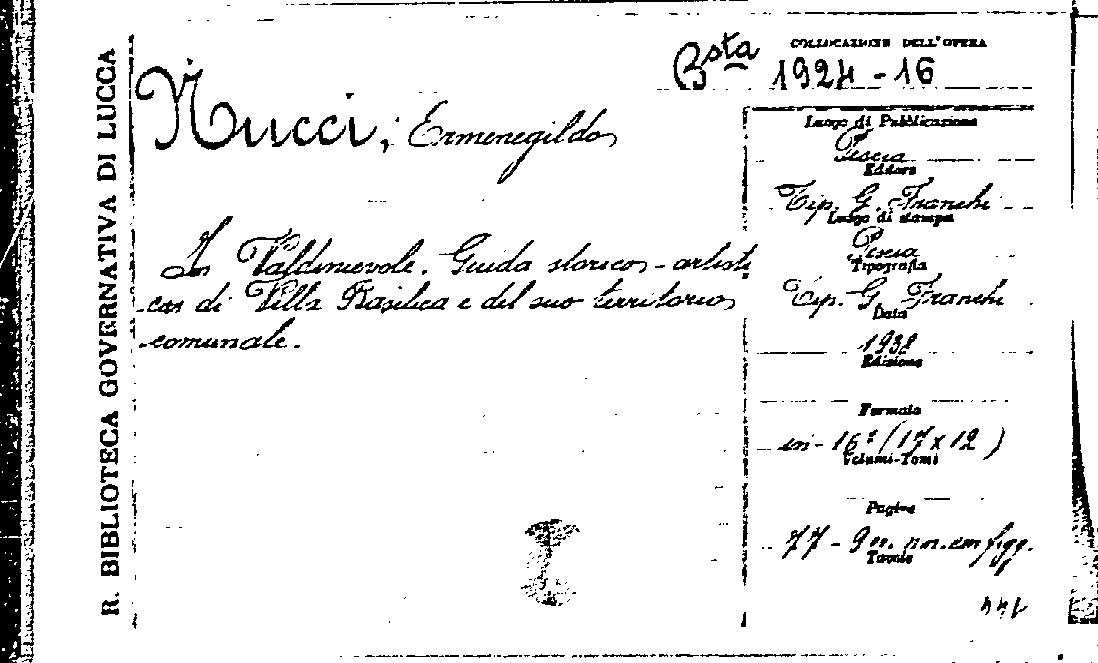 R. BIBLIOTECA GOVERNATIVA DI LUCCA
COLLOCAZIONE DELL'OPERA
Bsta 1924-16
Nucci, Ermenegildo
In Valdinievole. Guida storico-artisti
ca di Villa Basilica e del suo territorio
comunale.
Luogo di Pubblicazione
Pescia
Editore
Tip. G. Franchi
Luogo di stampa
Pescia
Tipografia
Tip. G. Franchi
Data
1938
Edizione
Formato
in-16º (17x12)
Volumi-Tomi
Pagine
77-9 nn. con figg.
Tavole